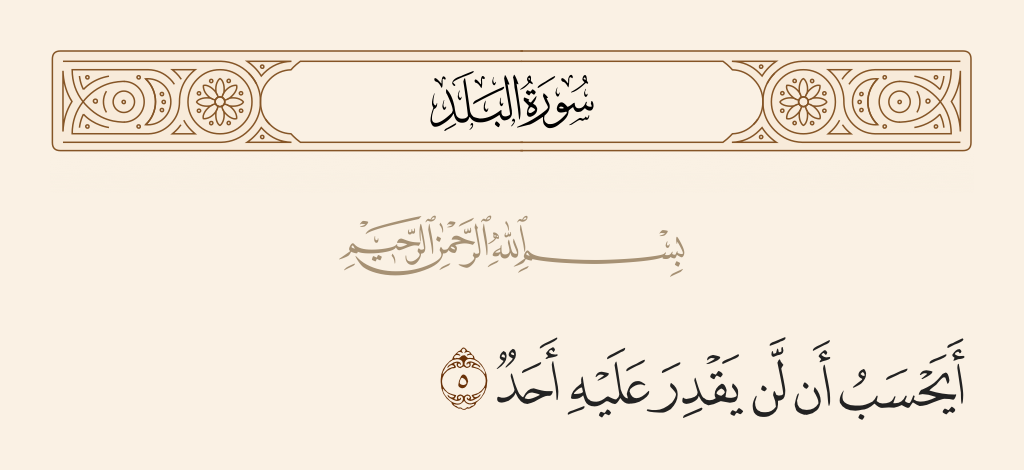 سُورَةُ البَلَدِ
بِسْمِ ٱللَّهِ ٱلرَّحْمَٰنِ ٱلرَّحِيمِ
أَيَحْسَبُ أَن لَّن يَقْدِرَ عَلَيْهِ أَحَدٌ ٥